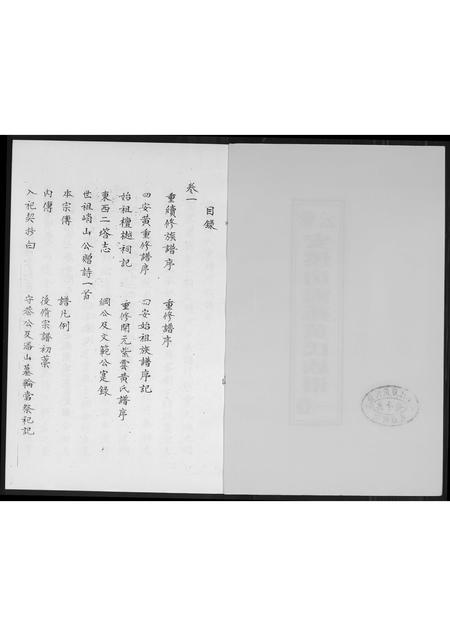 目錄
卷一
重續修族譜序
重修譜序
四安黃重修譜序
四安始祖族譜序記
始祖檀樾祠記
重修開元紫雲黃氏譜序
東西二塔志
綱公及文範公寔錄
世祖峭山公贈詩一首
本宗傳
譜凡例
內傳
後脩宗譜初藁
入祀契抄白
守恭公及潘山墓輪當祭祀記